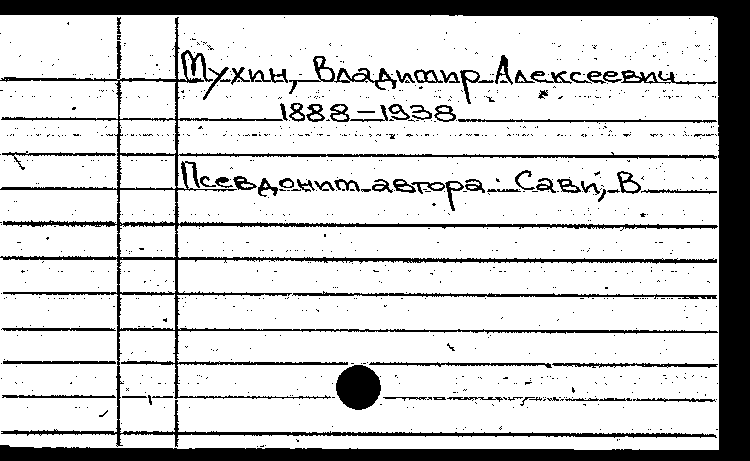 Мухин, Владимир Алексеевич
1888-1938
Псевдоним автора: Сави, В